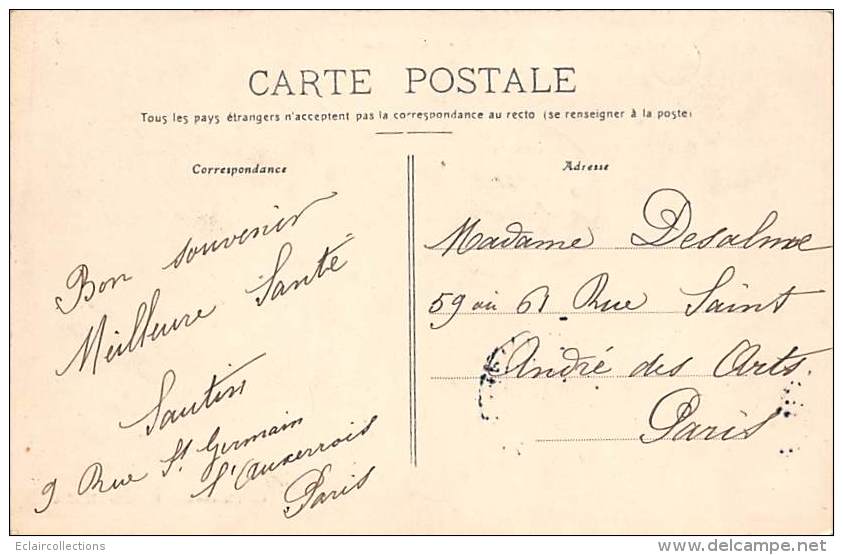 CARTE POSTALE
Tous les pays étrangers n'acceptent pas la correspondance au recto (se renseigner à la poste)
Correspondance
Bon souvenir
Meilleure Santé
Sautin
9 Rue St. Germain
l'Auxerrois
Paris
Adresse
Madame Desalme
59 ou 61 Rue Saint
André des Arts.
Paris
Eclaircollections
www.delcampe.net